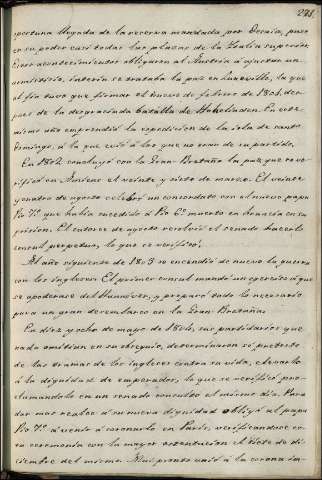 228.
oportuna llegada de la reserva mandada por Desaix, puso
en su poder casi todas las plazas de la Italia superior.
Estos acontecimientos obligaron al Austria á ajustar un
armisticio, interin se trataba la paz en Luneville, la que
al fin tuvo que firmar el nueve de febrero de 1801, des-
pues de la desgraciada batalla de Hohelinden. En este
mismo año emprendió la expedicion de la isla de santo
Domingo, á la que envió á los que no eran de su partido.
En 1802 concluyó con la Gran Bretaña la paz que se ve-
rificó en Amiens el veinte y siete de marzo. El veinte
y cuatro de agosto celebró un concordato con el nuevo papa
Pio 7.º que habia sucedido á Pio 6.º muerto en Francia en su
prision. El catorce de agosto resolvió el senado hacerlo
consul perpetuo, lo que se verificó.
Al año siguiente de 1803 se encendió de nuevo la guerra
con los ingleses. El primer consul mandó un egercito á que
se apoderase del Hannover, y preparó todo lo necesario
para un gran desembarco en la Gran Bretaña.
En diez y ocho de mayo de 1804, sus partidarios que
nada omitian en su obsequio, determinaron só pretesto
de las tramas de los ingleses contra su vida, elevarlo
á la dignidad de emperador, lo que se verificó pro-
clamandolo en un senado consulto el mismo dia. Para
dar mas realce á su nueva dignidad obligó al papa
Pio 7.º á venir á coronarlo en Paris, verificandose es-
ta ceremonia con la mayor ostentacion el siete de di-
ciembre del mismo. Mui pronto unió á la corona im-